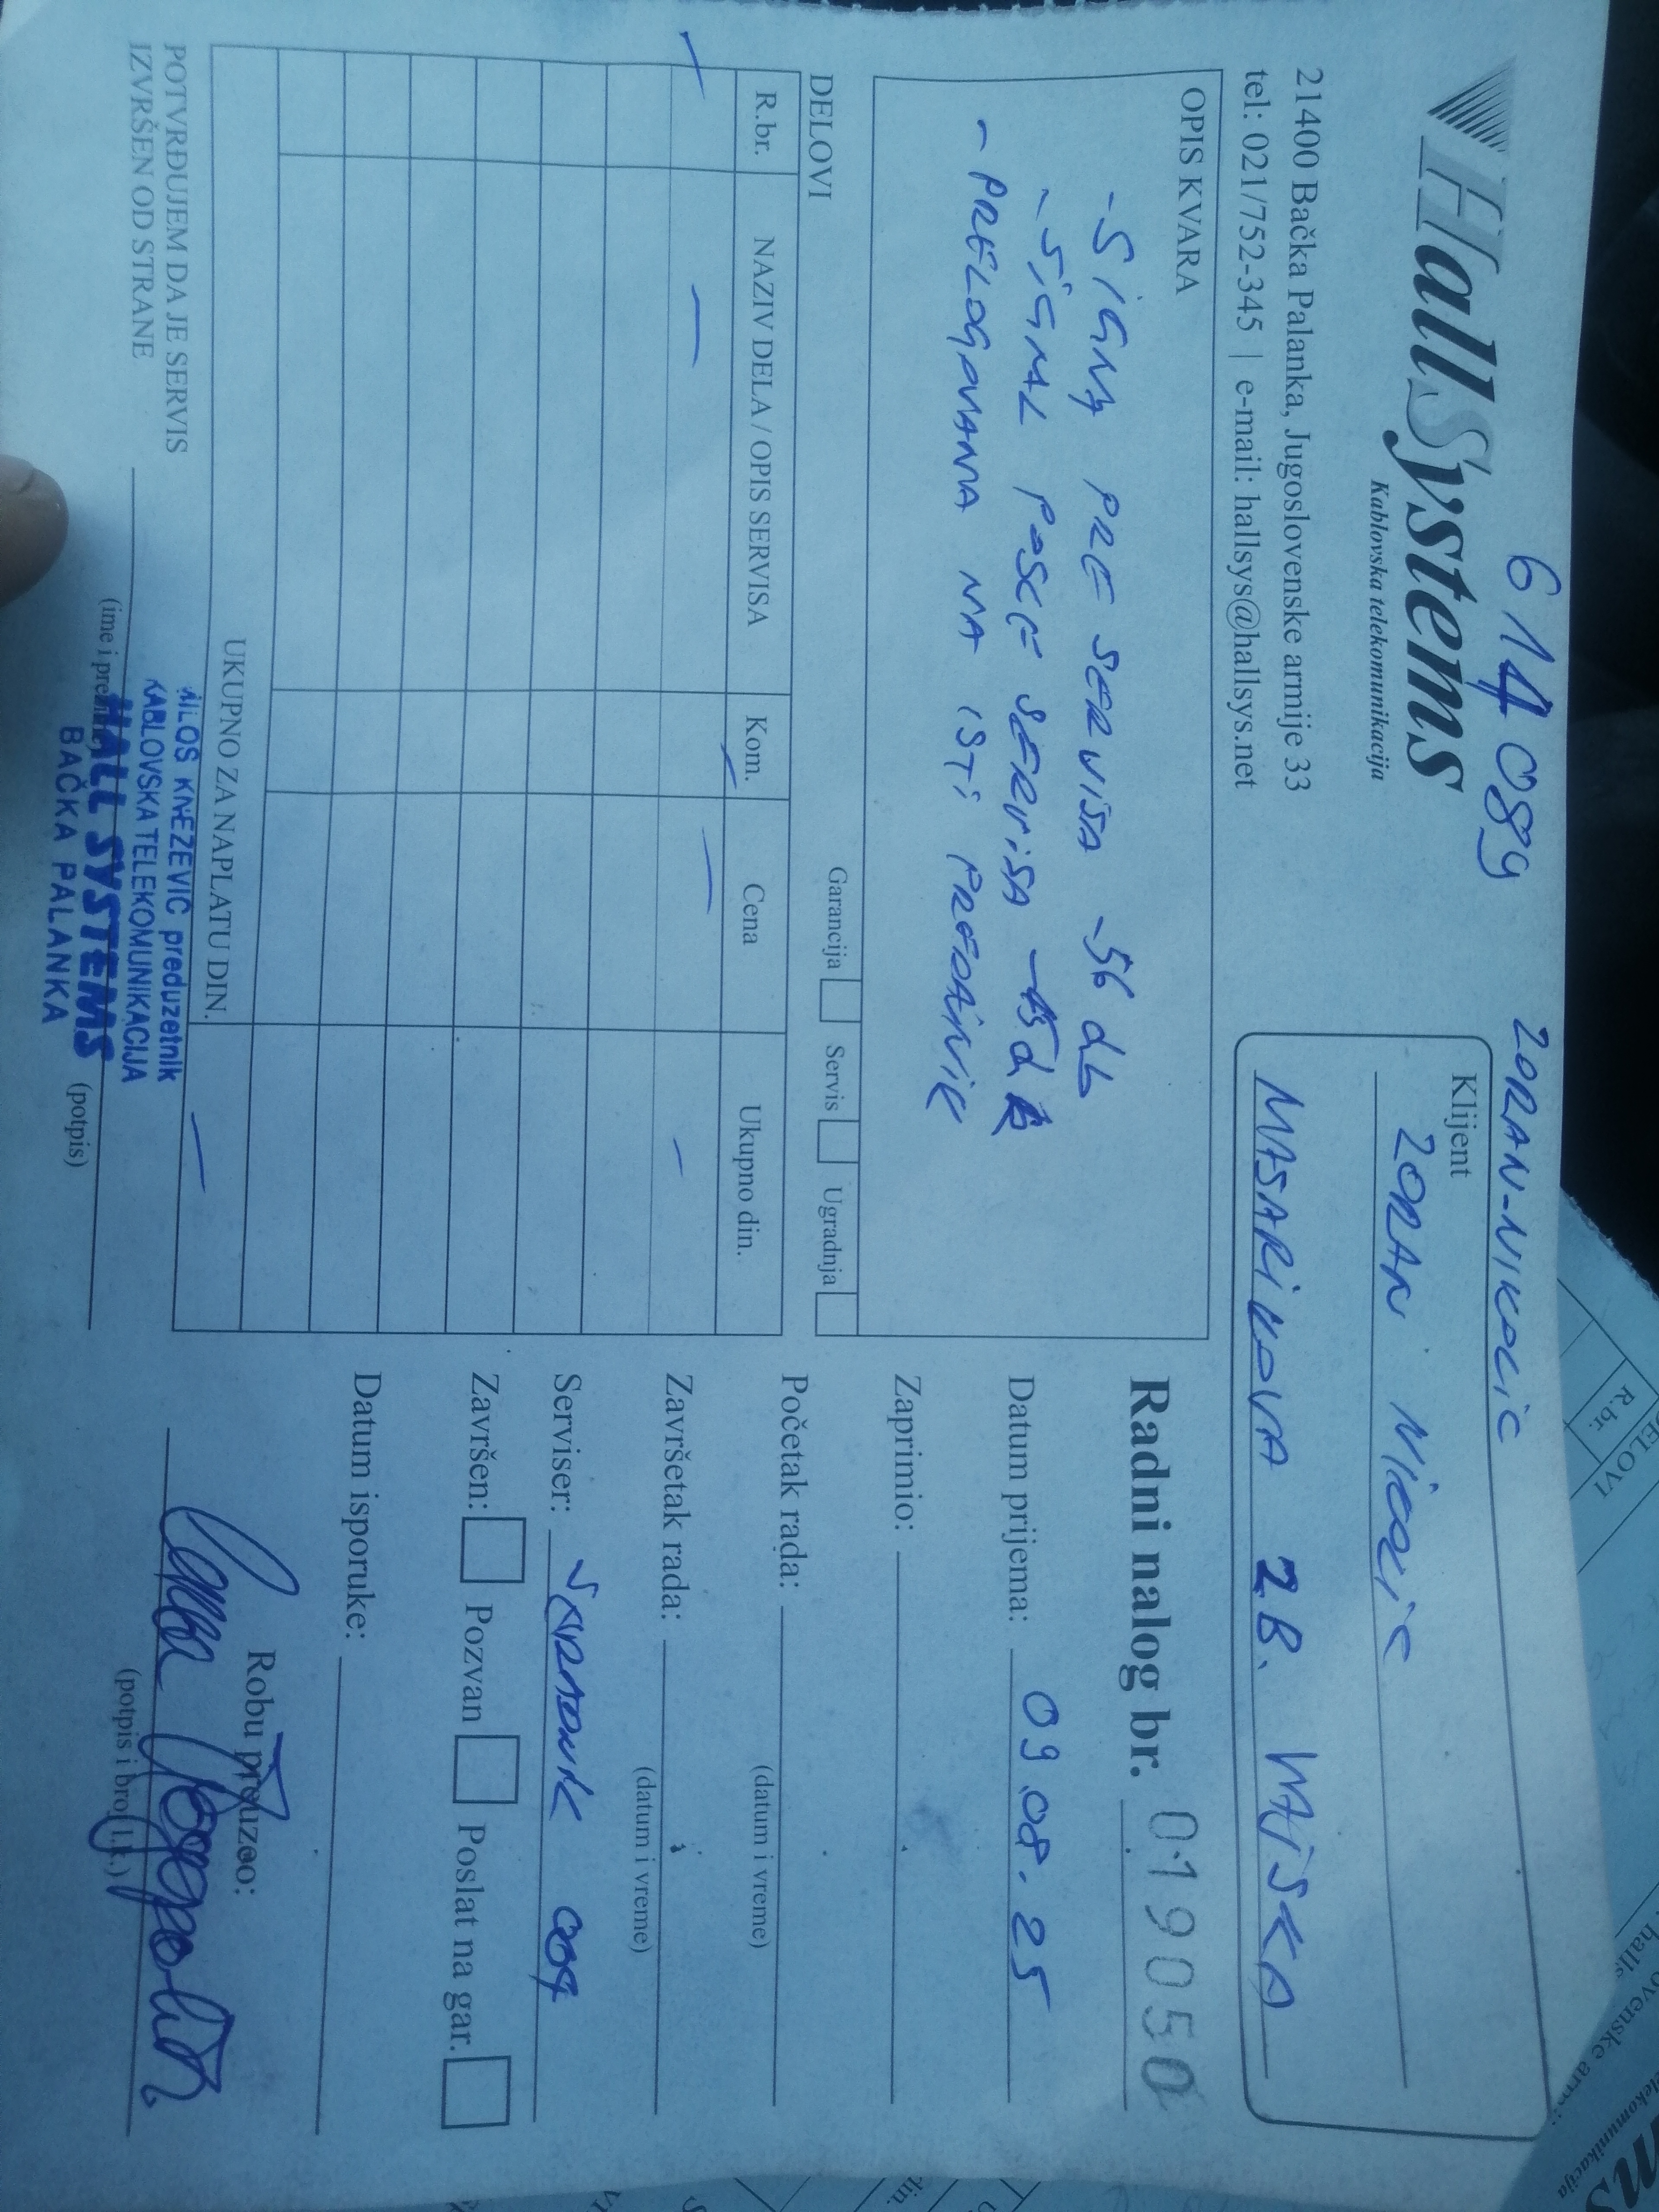 6 14 089
ZORAN-NIKOLIC
HallSystems
Kablovska telekomunikacija
21400 Bačka Palanka, Jugoslovenske armije 33
tel: 021/752-345 | e-mail: hallsys@hallsys.net
Klijent
ZORAN NIKOLIC
MASARIKOVA 2B.
OPIS KVARA
- SIGNAL PRE SERVISA -56 db
- SIGNAL POSLE SERVISA
- PRELOGOVANA NA ISTI PREDAJNIK
Radni nalog br. 019050
Datum prijema: 09.08.25
Zaprimio:
Početak rada:
(datum i vreme)
Završetak rada:
(datum i vreme)
Serviser:
Završen: Pozvan Poslat na gar.
Datum isporuke:
Robu preuzeo:
(potpis i broj l.k.)
Garancija Servis Ugradnja
DELOVI
R.br. NAZIV DELA / OPIS SERVISA Kom. Cena Ukupno din.
UKUPNO ZA NAPLATU DIN.
POTVRĐUJEM DA JE SERVIS
IZVRŠEN OD STRANE
(ime i (potpis)
MILOŠ KNEŽEVIĆ preduzetnik
KABLOVSKA TELEKOMUNIKACIJA
HALL SYSTEMS
BAČKA PALANKA
R.br.
DELOVI